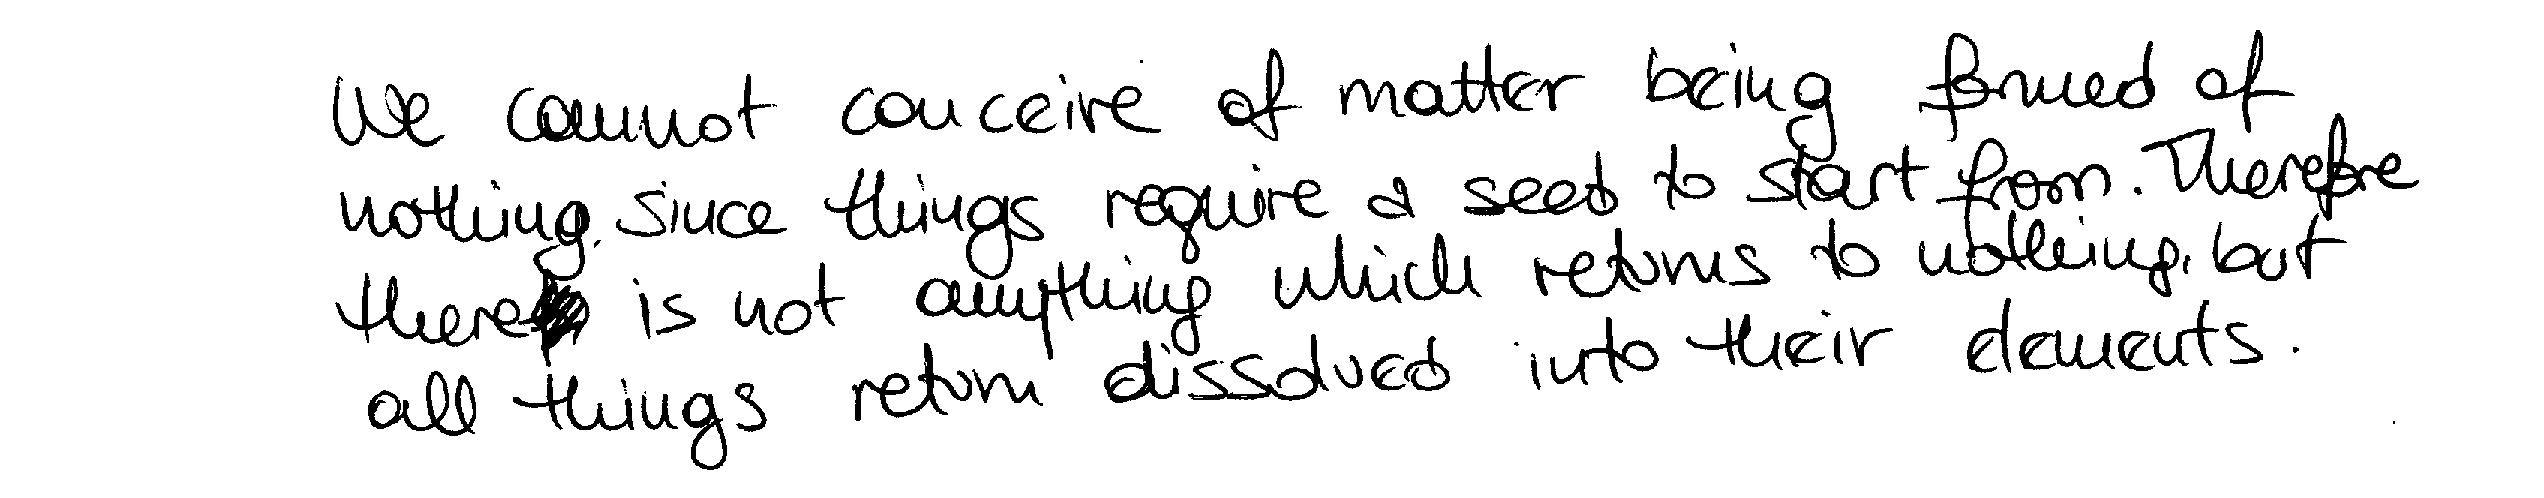 We cannot conceive of matter being formed of
nothing, since things require a seed to start from. Therefore
there is not anything which returns to nothing, but
all things return dissolved into their elements.